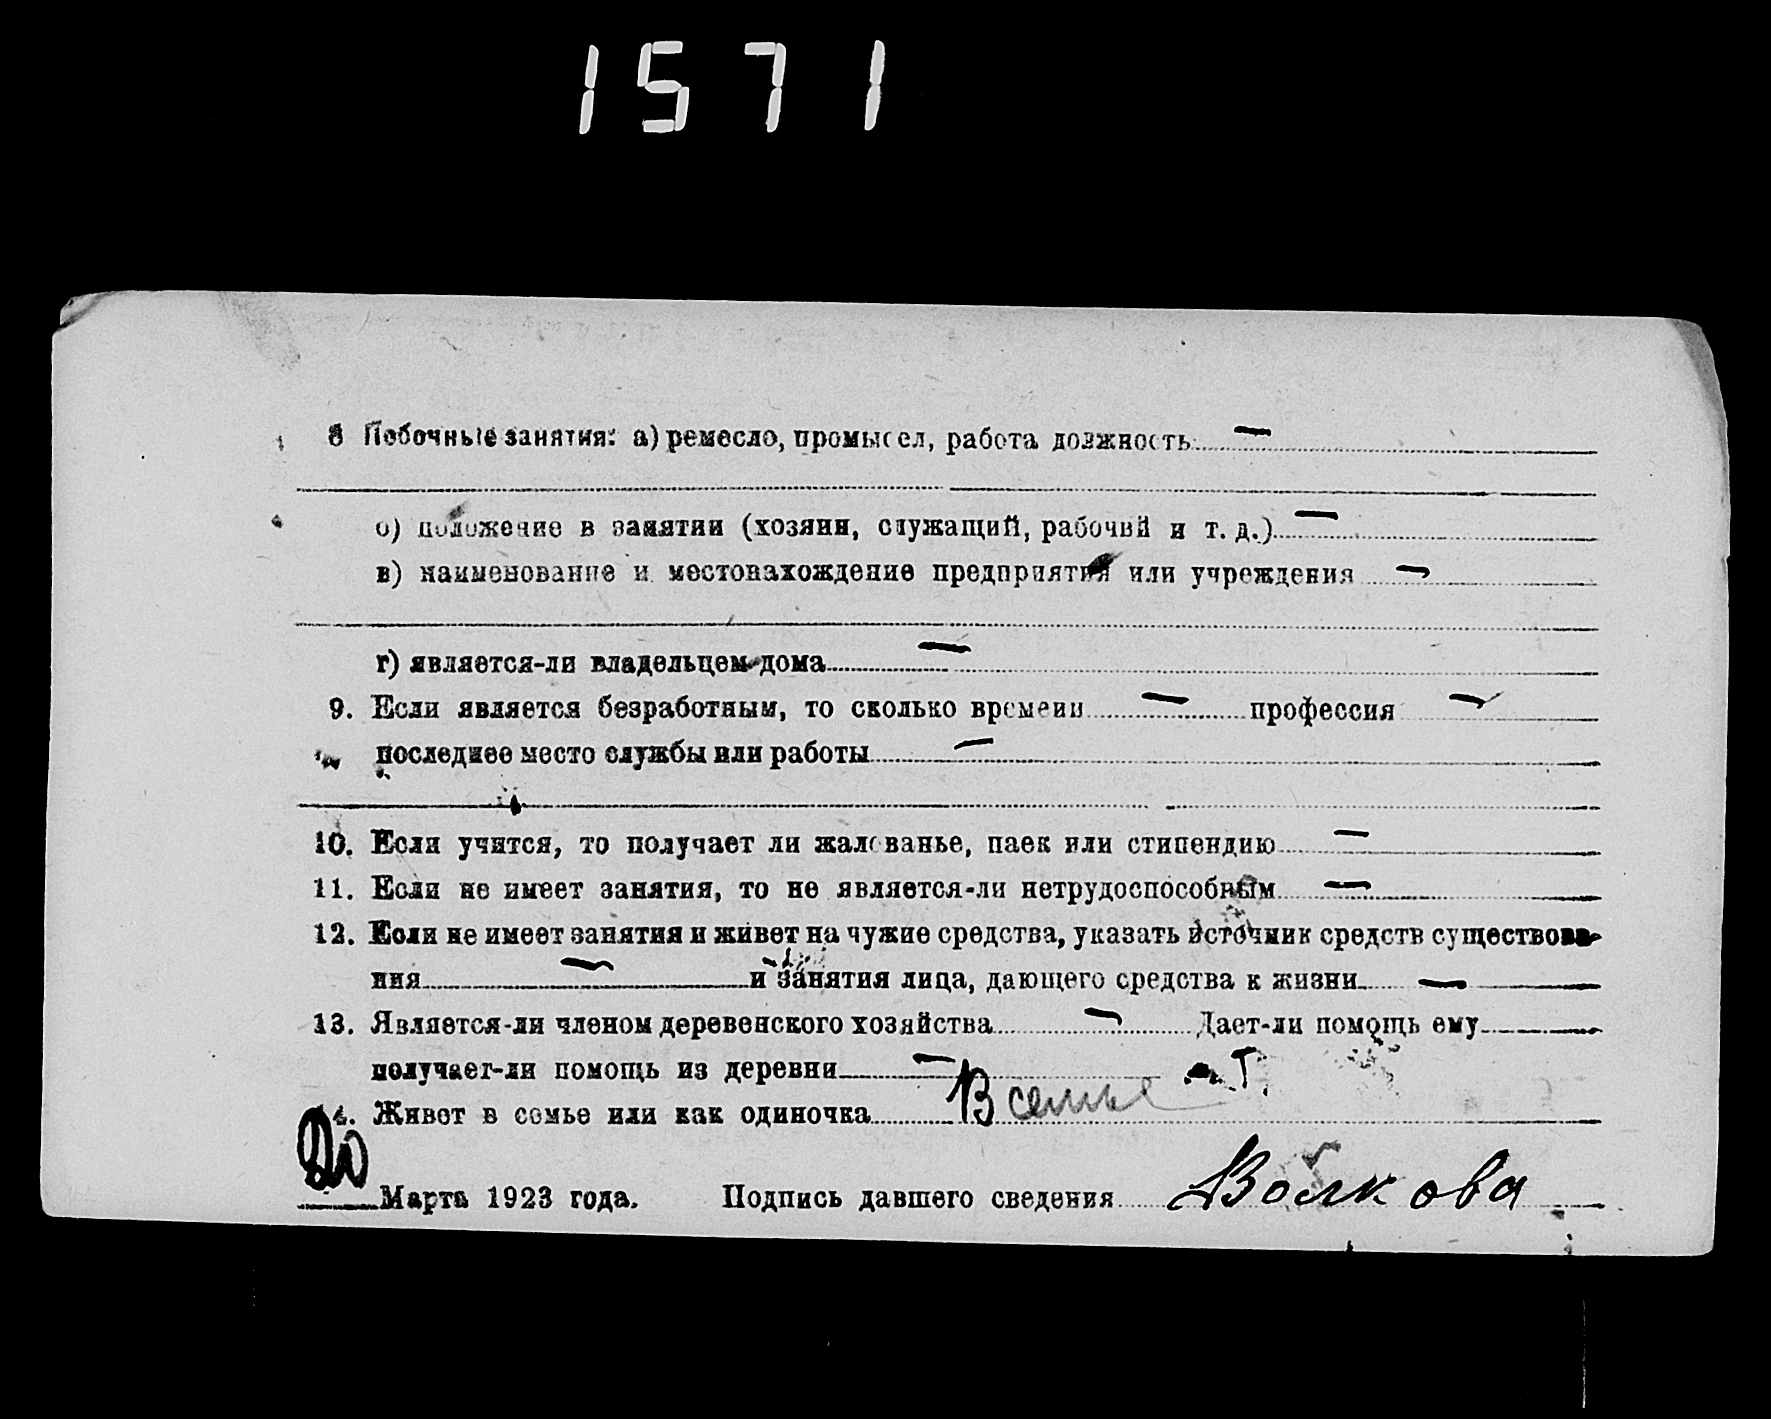 1571
8 Побочные занятия: а) ремесло, промысел, работа должность —
б) положение в занятии (хозяин, служащий, рабочий и т. д.) —
в) наименование и местонахождение предприятия или учреждения —
г) является-ли владельцем дома —
9. Если является безработным, то сколько времени — профессия —
последнее место службы или работы —
10. Если учится, то получает ли жалованье, паек или стипендию —
11. Если не имеет занятия, то не является-ли нетрудоспособным —
12. Если не имеет занятия и живет на чужие средства, указать источник средств существова-
ния — и занятия лица, дающего средства к жизни —
13. Является-ли членом деревенского хозяйства — Дает-ли помощь ему
получает-ли помощь из деревни —
14. Живет в семье или как одиночка В семье
Марта 1923 года. Подпись давшего сведения Волкова